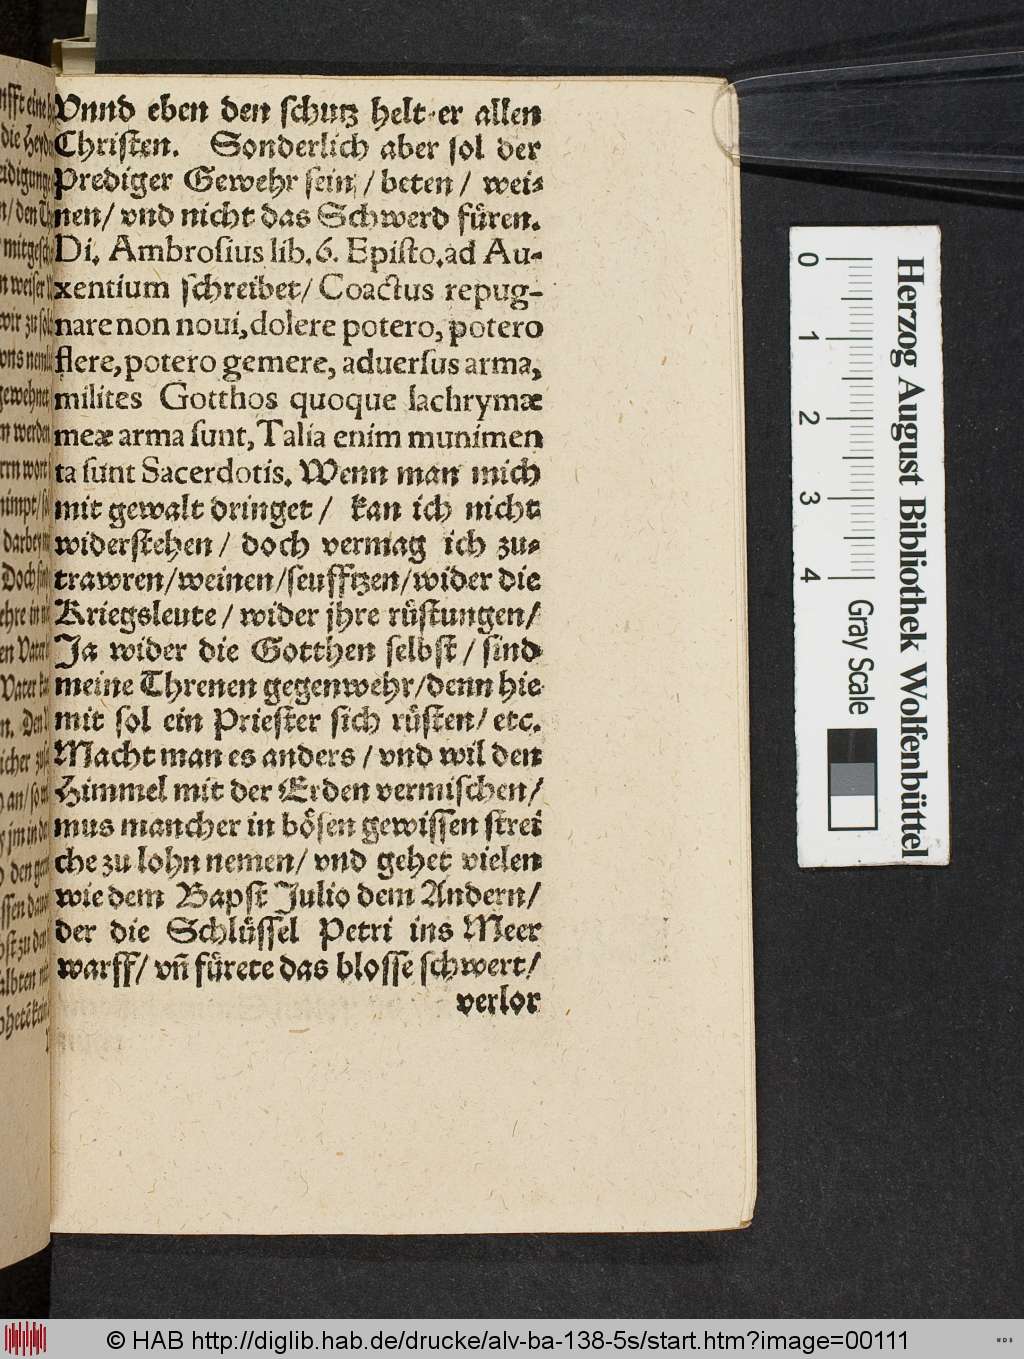 Vnnd eben den schutz helt er allen
Christen. Sonderlich aber sol der
Prediger Gewehr sein / beten / wei⸗
nen / vnd nicht das Schwerd füren.
Di. Ambrosius lib. 6. Episto. ad Au-
xentium schreibet / Coactus repug-
nare non noui, dolere potero, potero
flere, potero gemere, aduersus arma,
milites Gotthos quoque lachrymæ
meæ arma sunt, Talia enim munimen
ta sunt Sacerdotis. Wenn man mich
mit gewalt dringet / kan ich nicht
widerstehen / doch vermag ich zu⸗
trawren / weinen / seuffitzen / wider die
Kriegsleute / wider jhre rüstungen /
Ja wider die Gotthen selbst / sind
meine Threnen gegenwehr / denn hie
mit sol ein Priester sich rüsten / etc.
Macht man es anders / vnd wil den
Himmel mit der Erden vermischen /
mus mancher in bösen gewissen strei
che zu lohn nemen / vnd gehet vielen
wie dem Bapst Julio dem Andern /
der die Schlüssel Petri ins Meer
warff / vñ fürete das blosse schwert /
verlor
0 1 2 3 4
Herzog August Bibliothek Wolfenbüttel
Gray Scale
© HAB http://diglib.hab.de/drucke/alv-ba-138-5s/start.htm?image=00111